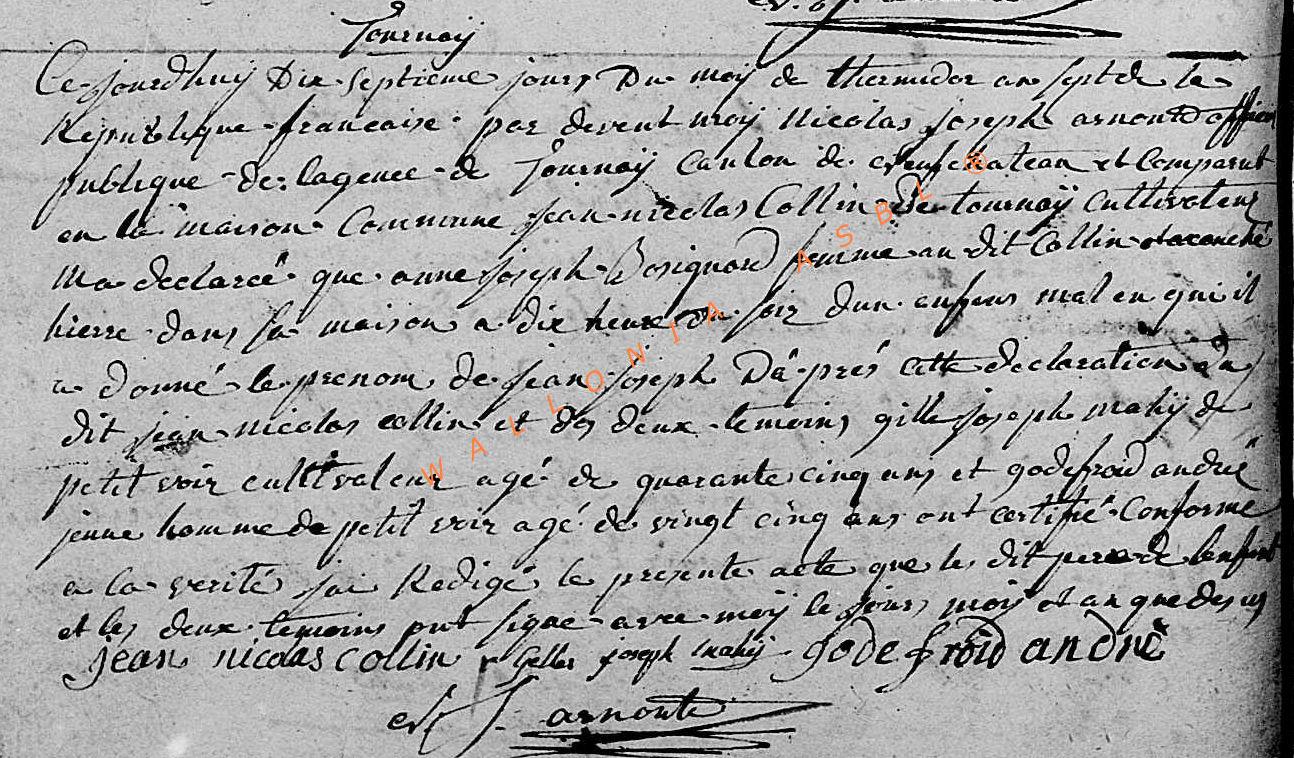 Tournaÿ
Ce jourdhuij Dix Septieme jours Du moij de thermidor an Sept de la
Republique francaise par devent moij Nicolas joseph arnould officier
publique de lagence de Tournaÿ Canton de neufchateau est Comparut
en la maison Commune jean nicolas Collin de tournaÿ Cultivateur
Ma declaré que anne joseph Bosignard femme au dit Collin et acouché
hierre dans sa maison a dix heure du soir dun enfens mal en qui il
a donné le prenom de jean joseph Dâ prés cette declaration du
dit jean nicolas collin et des deux temoins gille joseph mahij de
petit voir cultivateur agé de quarante cinq ans et godefroid andrié
jeune homme de petit voir agé de vingt cinq ans ont certifié Conforme
a la verité jai Redigé le presente acte que les dit pere de lenfent
et les deux temoins ont signe avec moij le jours moij et an que desus
jean nicolas collin Gilles joseph mahij godefroid andrié
N J arnould
WALLONIA ASBL ®